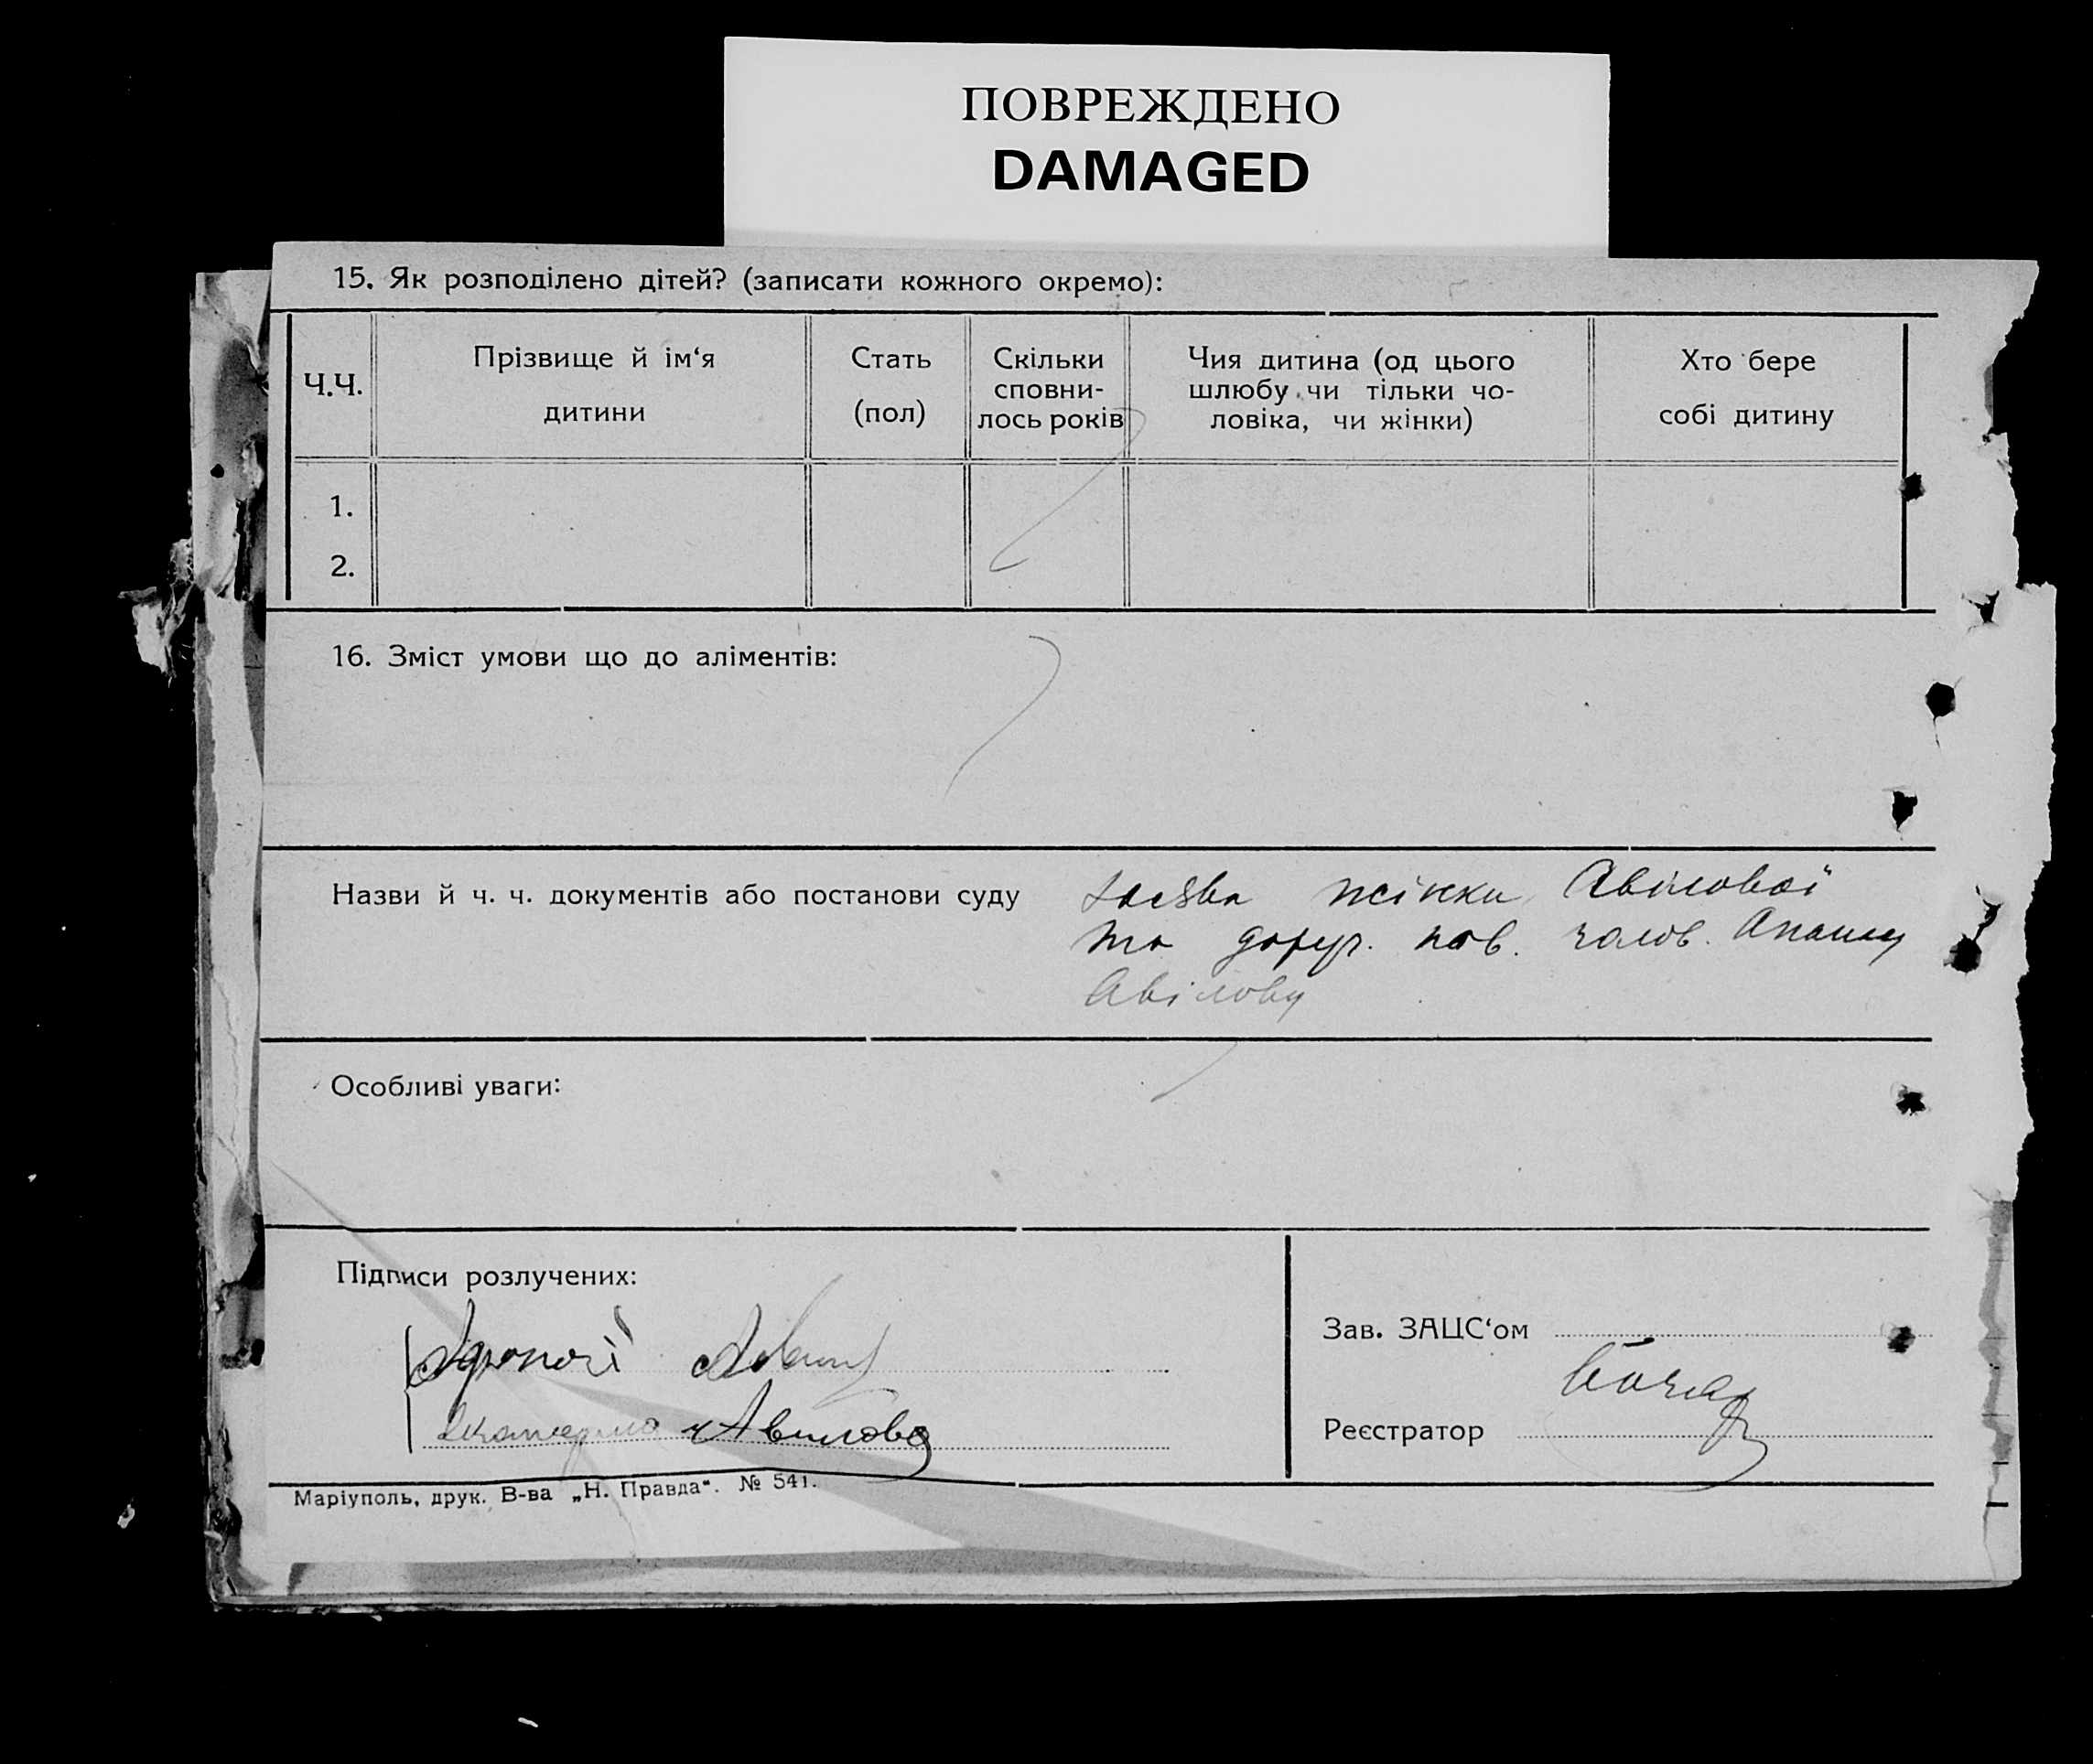 ПОВРЕЖДЕНО
DAMAGED
15. Як розподілено дітей? (записати кожного окремо):
Ч.Ч.
Прізвище й ім‘я
дитини
Стать
(пол)
Скільки
сповни-
лось років
Чия дитина (од цього
шлюбу чи тільки чо-
ловіка, чи жінки)
Хто бере
собі дитину
1.
2.
16. Зміст умови що до аліментів:
Назви й ч. ч. документів або постанови суду
жінки Авілової
та доруч. пов. чолов.
Авілову
Особливі уваги:
Підписи розлучених:
Екатерина Авилова
Зав. ЗАЦС‘ом
Реєстратор
Маріуполь, друк. В-ва „Н. Правда“. № 541.